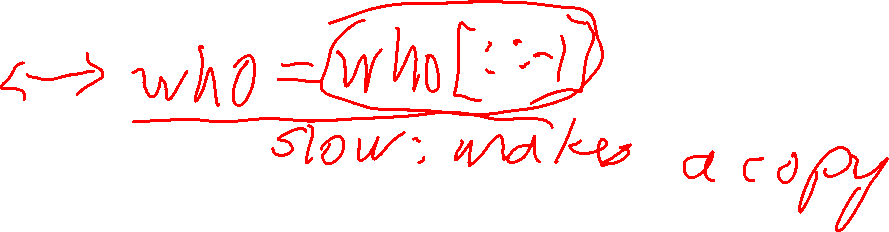 ↔ who = who[::-1]
slow: makes a copy